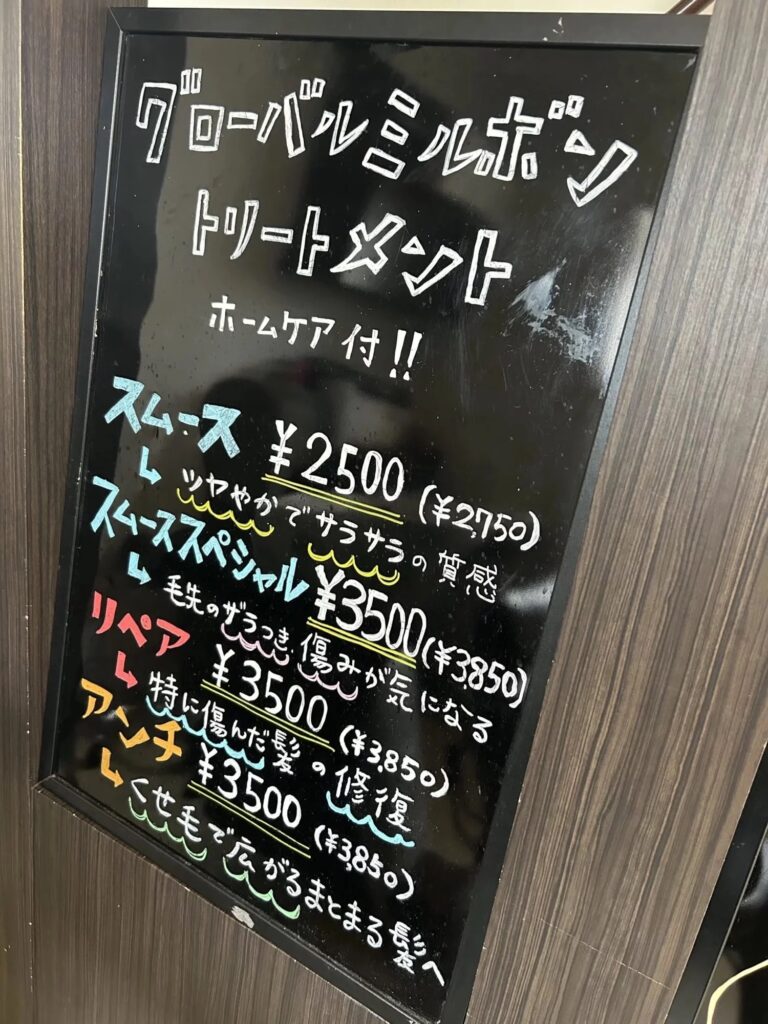 グローバルミルボン
トリートメント
ホームケア付!!
スムース ¥2500 (¥2,750)
↳ ツヤやかでサラサラの質感
スムーススペシャル ¥3500 (¥3,850)
↳ 毛先のザラつき、傷みが気になる
リペア ¥3500 (¥3,850)
↳ 特に傷んだ髪の修復
アンチ ¥3500 (¥3,850)
↳ くせ毛で広がるまとまる髪へ